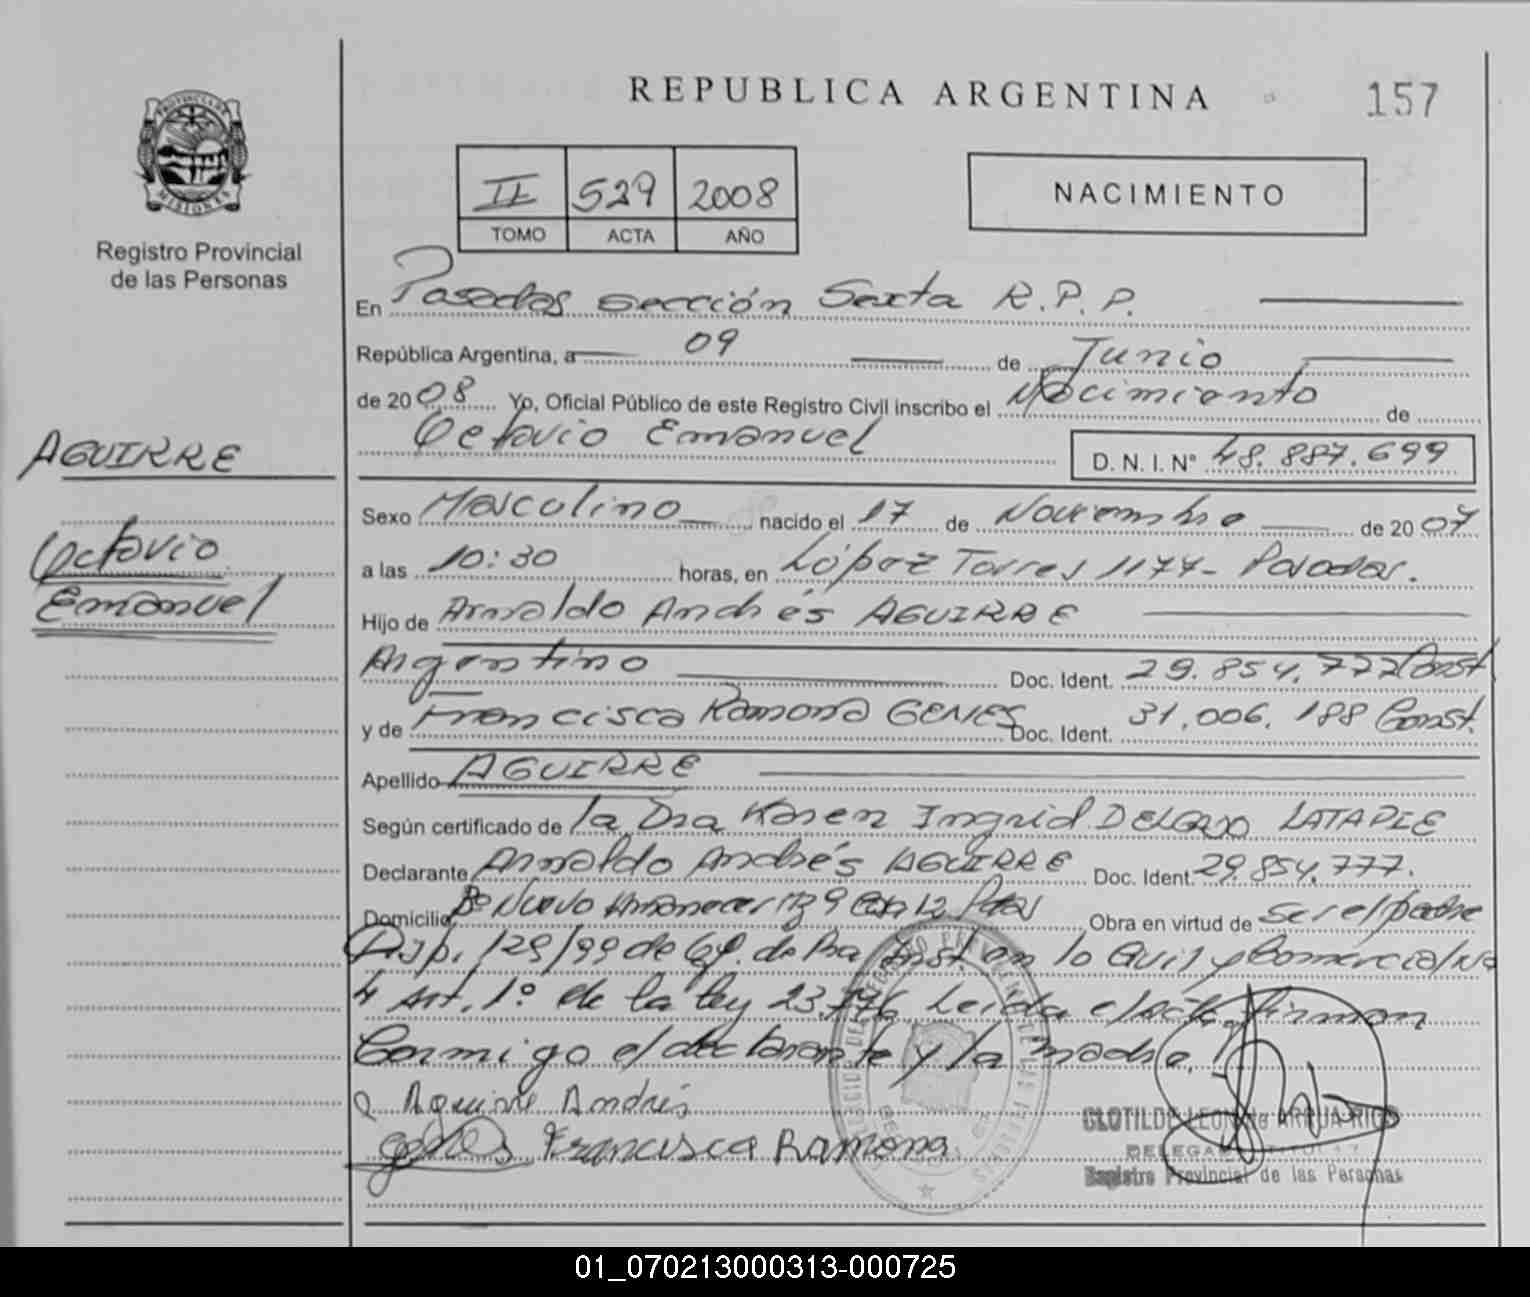 REPUBLICA ARGENTINA
157
PROVINCIA DE MISIONES
Registro Provincial
de las Personas
II 529 2008
TOMO ACTA AÑO
NACIMIENTO
En Posadas sección Sexta R.P.P.
República Argentina, a 09 de Junio
de 2008 Yo, Oficial Público de este Registro Civil inscribo el Nacimiento de
Octavio Emanuel D.N.I. N° 48.887.699
AGUIRRE
Octavio
Emanuel
Sexo Masculino nacido el 17 de Noviembre de 2007
a las 10:30 horas, en López Torres 1177- Posadas.
Hijo de Arnaldo Andrés AGUIRRE
Argentino Doc. Ident. 29.854.777 Const
y de Francisca Ramona GENES Doc. Ident. 31.006.188 Const.
Apellido AGUIRRE
Según certificado de la Dra Karen Ingrid DELGADO LATAPIE
Declarante Arnaldo Andrés AGUIRRE Doc. Ident. 29.854.777.
Domicilio Bº Nuevo Amanecer Mz 9 Casa 12 Pdas Obra en virtud de ser el padre
Disp. 129/99 de de Pra Inst. en lo Civil y Comercial Nº
4 Art. 1º de la ley 23.776 Leida el Acta, firman
Conmigo el declarante y la madre.
Aguirre Andrés
genes Francisca Ramona
CLOTILDE LEON de ARRUA RIOS
Registro Provincial de las Personas
01_070213000313-000725